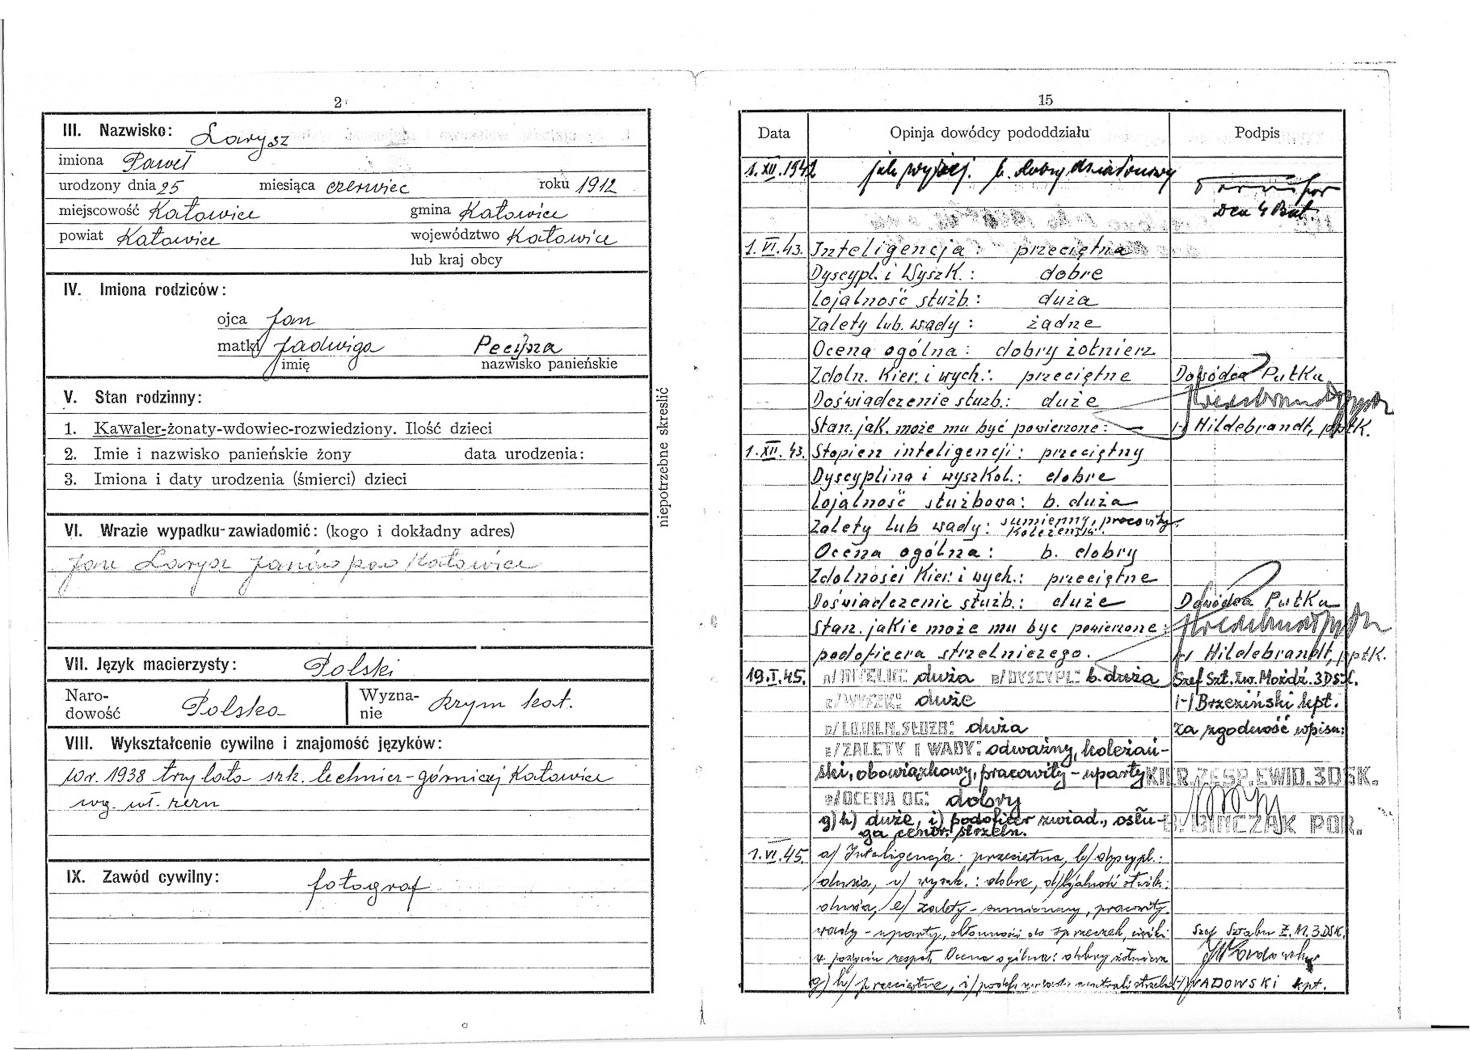 2
III. Nazwisko: Larysz
imiona Paweł
urodzony dnia 25 miesiąca czerwiec roku 1912
miejscowość Katowice gmina Katowice
powiat Katowice województwo Katowice
lub kraj obcy
IV. Imiona rodziców:
ojca Jan
matki Jadwiga
imię nazwisko panieńskie
V. Stan rodzinny:
1. Kawaler-żonaty-wdowiec-rozwiedziony. Ilość dzieci
2. Imie i nazwisko panieńskie żony data urodzenia:
3. Imiona i daty urodzenia (śmierci) dzieci
niepotrzebne skreślić
VI. Wrazie wypadku-zawiadomić: (kogo i dokładny adres)
Jan Larysz Janów pow Katowice
VII. Język macierzysty: Polski
Narodowość Polska Wyznanie Rzym kat.
VIII. Wykształcenie cywilne i znajomość języków:
W r. 1938 trzy lata szk. techniczn-górniczej Katowice
wg. wł. zezn
IX. Zawód cywilny: fotograf
15
Data Opinja dowódcy pododdziału Podpis
1.XII.1942 jak wyżej. b. dobry działonowy
Dca 4 Bat.
1.VI.43. Inteligencja: przeciętna
Dyscypl. i Wyszk.: dobre
Lojalność służb: duża
Zalety lub. wady: żądne
Ocena ogólna: dobry żołnierz
Zdoln. Kier. i wych.: przeciętne Dowódca Pułku
Doświadczenie służb.: duże
Stan. jak. może mu być powierzone: — /-/ Hildebrandt, ppłk.
1.XII.43. Stopień inteligencji: przeciętny
Dyscyplina i wyszkol.: dobre
Lojalność służbowa: b. duża
Zalety lub wady: sumienny, pracowity
koleżeński.
Ocena ogólna: b. dobry
Zdolności Kier. i wych.: przeciętne
Doświadczenie służb.: duże Dowódca Pułku
Stan. jakie może mu być powierzone:
podoficera strzelniczego. /-/ Hildebrandt, ppłk.
19.I.45. a/ INTELIG: duża b/ DYSCYPL: b. duża Szef Szt. Zw. Moźdź. 3DSK.
c/ WYSZK: duże /-/ Brzeziński kpt.
d/ LOJALN. SŁUŻB: duża Za zgodność wpisu:
e/ ZALETY I WADY: odważny, koleżeń-
ski, obowiązkowy, pracowity - uparty KIER. ZESP. EWID. 3DSK.
f/ OCENA OG: dobry
g) h) duże, i) podoficer zwiad., obsłu- BINCZAK POR.
ga centr. strzeln.
1.VI.45. a/ Inteligencja: przeciętna, b/ dyscypl.:
duża, c/ wyszk.: dobre, d/ lojalność służb.:
duża, e/ zalety - sumienny, pracowity,
wady - uparty, skłonności do sprzeczek, Szef Sztabu Z.M. 3DSK.
Ocena ogólna: dobry żołnierz
g) h/ przeciętne, i/ kpt.